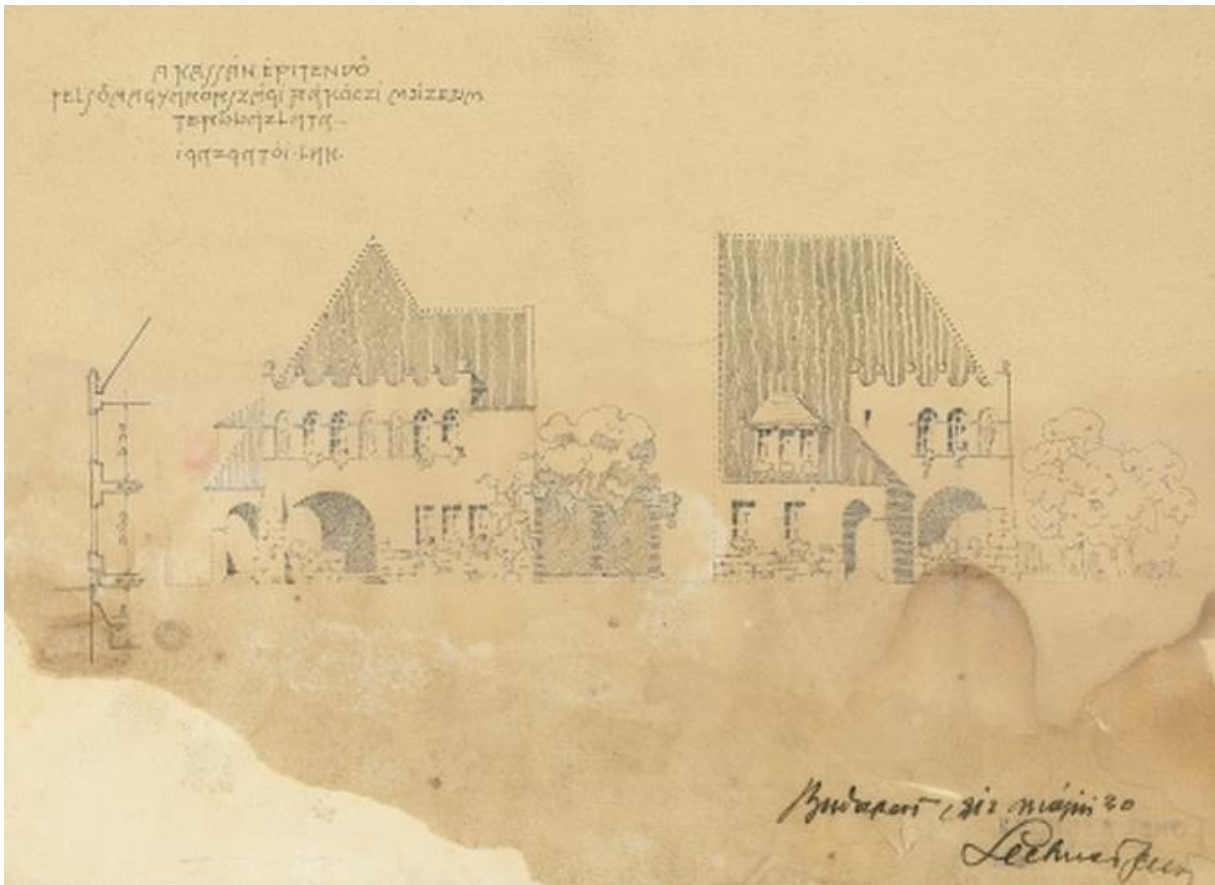 A KASSÁN ÉPITENDŐ
FELSŐMAGYARORSZÁGI RÁKÓCZI MÚZEUM
TERVVÁZLATA.
IGAZGATÓI-LAK.
Budapest, 912 május 20
Lechner Jenő